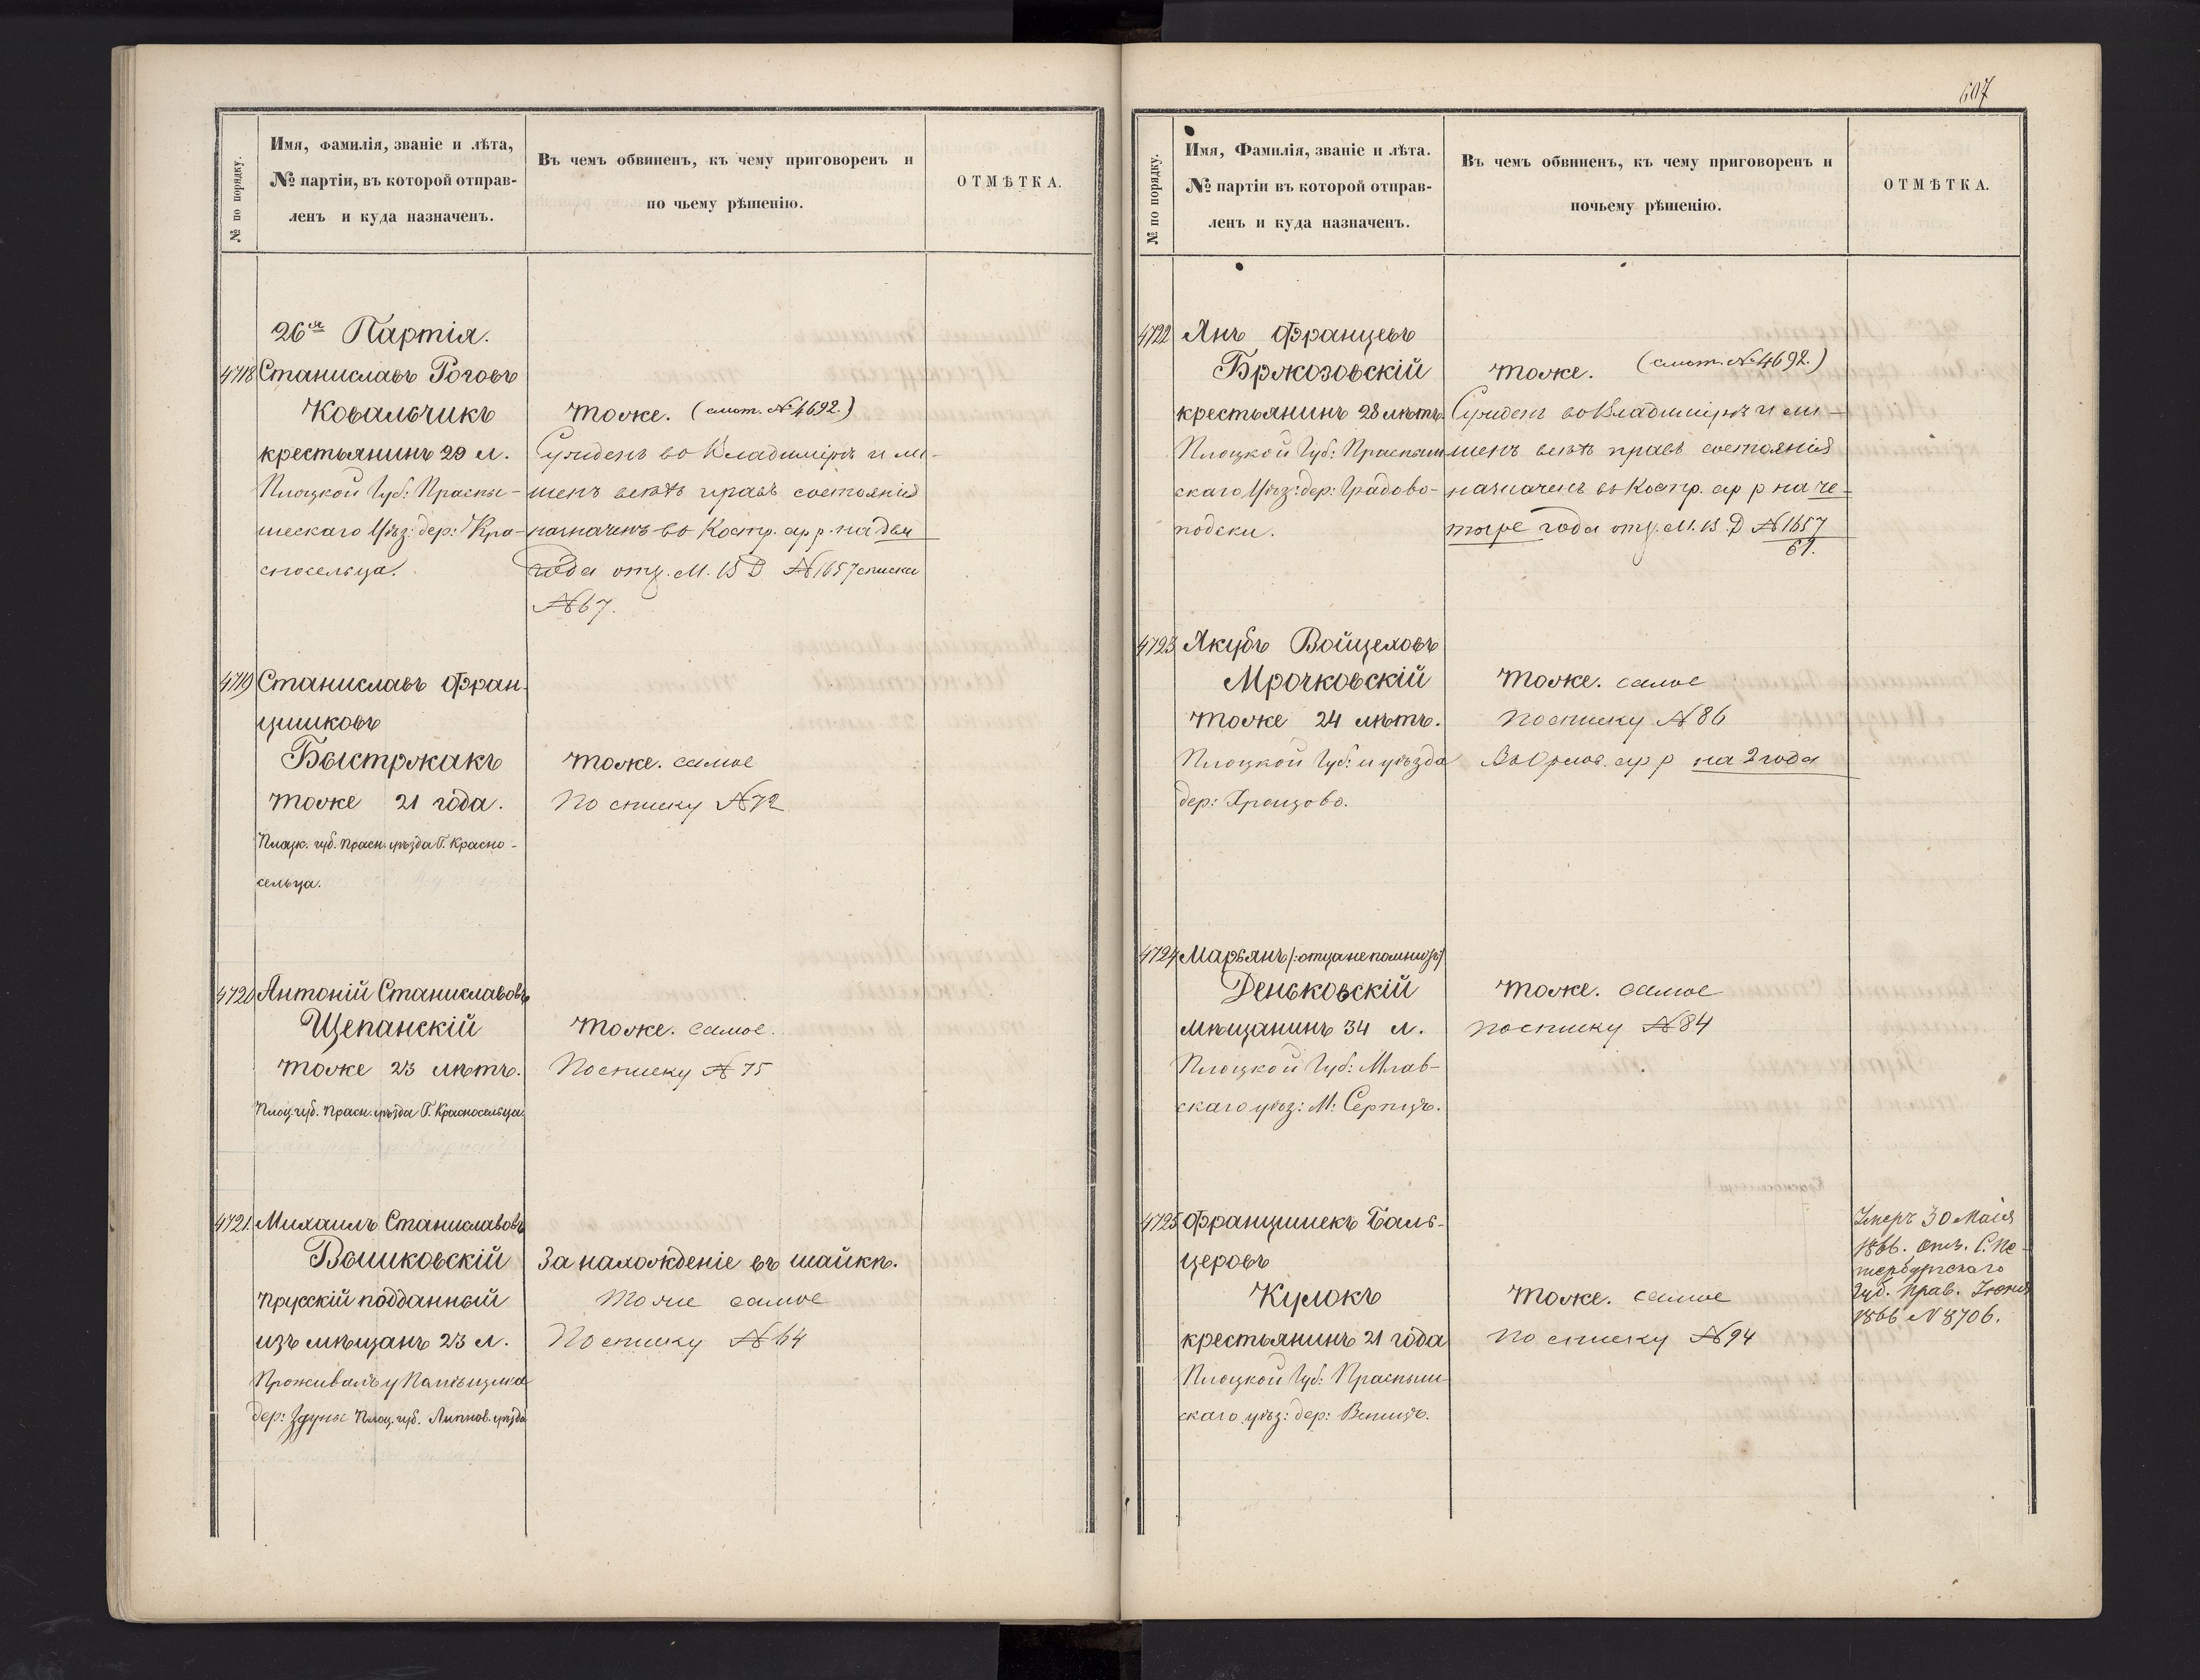 № по порядку.
Имя, фамилія, званіе и лѣта,
№ партіи, въ которой отправ-
ленъ и куда назначенъ.
Въ чемъ обвиненъ, къ чему приговоренъ и
по чьему рѣшенію.
ОТМѢТКА.
26я Партія.
4718 Станиславъ Роговъ
Ковальчикъ
крестьянинъ 29 л.
Плоцкой Губ: Прасны-
шескаго Уѣз: дер: Кра-
сносельца.
тоже. (смот. № 4692.)
Сужденъ во Владимірѣ и ли-
шенъ всѣхъ правъ состоянія
назначенъ въ Костр. ар р. на два
года отз. М. В Д №1657 списка
№67.
4719 Станиславъ Фран-
цишковъ
Быстржакъ
тоже 21 года.
Плоцк. губ. Прасн. уѣзда Г. Красно-
сельца.
тоже. самое
По списку №72
4720 Антоній Станиславовъ
Щепанскій
тоже 23 лѣтъ.
Плоц. губ. Прасн. уѣзда Г. Красносельца.
тоже. самое.
По списку № 75
4721. Михаилъ Станиславовъ
Вышковскій
прусскій подданный
изъ мѣщанъ 23 л.
Проживалъ у
дер: Здуны Плоц. губ. Липнов. уѣзда
За нахожденіе въ шайкѣ.
тоже самое
По списку №64
607
№ по порядку.
Имя, Фамилія, званіе и лѣта.
№ партіи въ которой отправ-
ленъ и куда назначенъ.
Въ чемъ обвиненъ, къ чему приговоренъ и
почьему рѣшенію.
ОТМѢТКА.
4722 Янъ Францевъ
Бржозовскій
крестьянинъ 28 лѣтъ.
Плоцкой Губ: Прасныш
скаго Уѣз: дер: Градово-
подски.
тоже. (смот. №4692.)
Сужденъ во Владимірѣ и ли-
шенъ всѣхъ правъ состоянія
назначенъ въ Костр. ар р на че-
тыре года отз. М. В. Д №1657
61.
4723 Якубъ Войцеховъ
Мрочковскій
тоже 24 лѣтъ.
Плоцкой Губ: и уѣзда
дер:
тоже. самое
По списку №86
Въ Орлов. ар р на 2 года
4724 Марьянъ /:отца не помнитъ:/
Деньковскій
мѣщанинъ 34 л.
Плоцкой Губ: Млав-
скаго уѣз: М: Серпцъ.
тоже. самое
по списку №84
4725 Францишекъ Баль-
церовъ
Кулокъ
крестьянинъ 21 года
Плоцкой Губ: Прасныш-
скаго уѣз: дер:
тоже. самое
по списку №94
Умеръ 30 Маія
1866. Отз. С. Пе-
тербургскаго
Губ. Прав. Іюня
1866 № 8706.